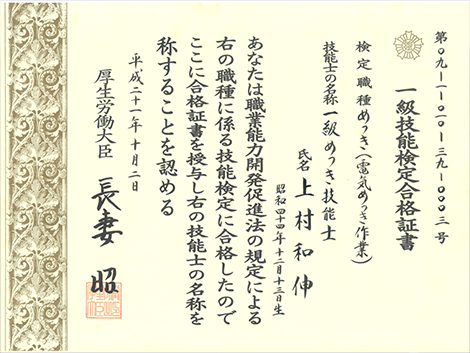 第〇九-一-〇一〇-三九-〇〇〇三号
一級技能検定合格証書
検定職種めっき(電気めっき作業)
技能士の名称一級めっき技能士
氏名 上村和伸
昭和四十四年十二月十三日生
あなたは職業能力開発促進法の規定による
右の職種に係る技能検定に合格したので
ここに合格証書を授与し右の技能士の名称を
称することを認める
平成二十一年十月二日
厚生労働大臣 長妻昭